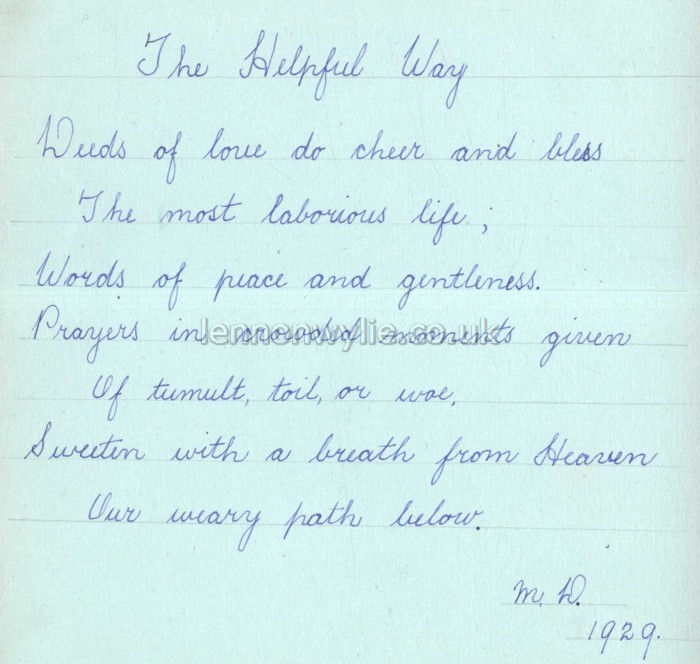 The Helpful Way
Deeds of love do cheer and bless
The most laborious life;
Words of peace and gentleness.
Prayers in crowded moments given
lennonwylie.co.uk
Of tumult, toil, or woe,
Sweeten with a breath from Heaven
Our weary path below.
M. D.
1929.